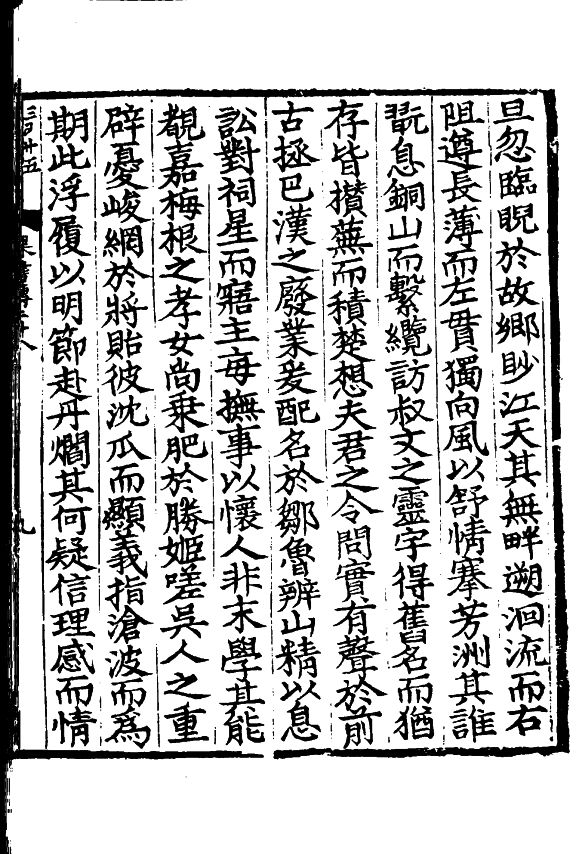 旦忽臨睨於故鄉眇江天其無畔遡洄流而右
阻遵長薄而左貫獨向風以舒情搴芳洲其誰
翫息銅山而繫纜訪叔文之靈宇得舊名而猶
存皆攅蕪而積楚想夫君之令問實有聲於前
古拯巴漢之廢業爰配名於鄒魯辨山精以息
訟對祠星而寤主每撫事以懷人非末學其能
覩嘉梅根之孝女尚乗肥於勝姬嗟吳人之重
辟憂峻網於將貽彼沈瓜而顯義指滄波而爲
期此浮履以明節赴丹爓其何疑信理感而情
九